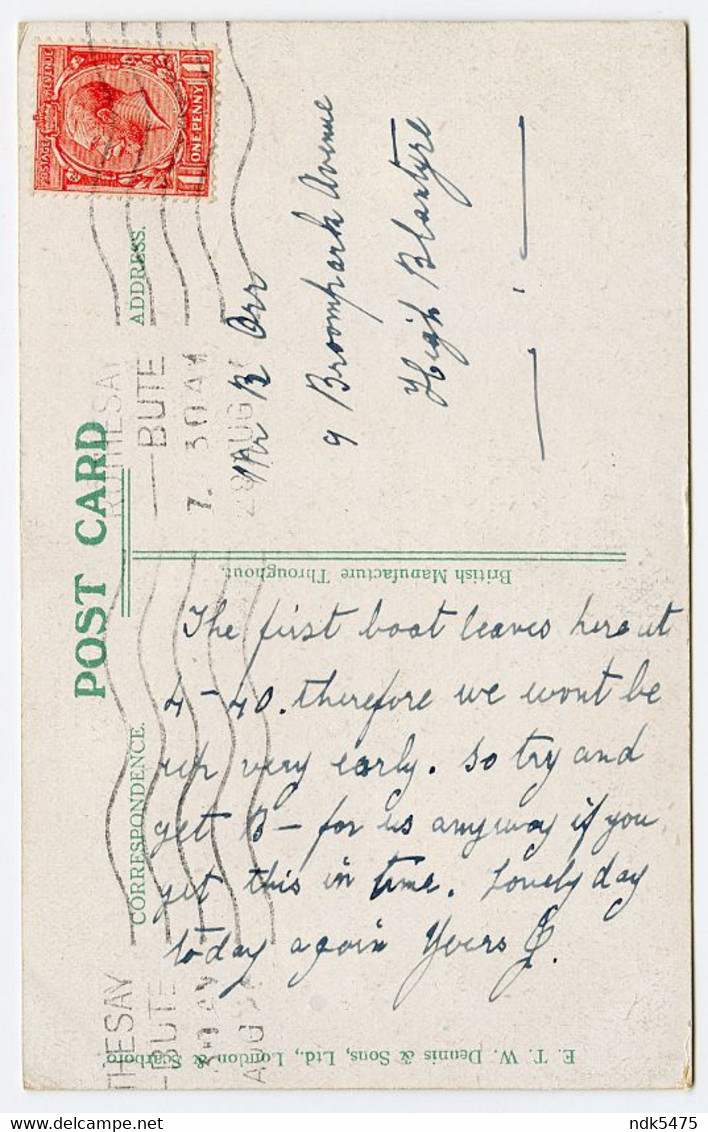 POST CARD
CORRESPONDENCE.
ADDRESS.
POSTAGE REVENUE
ONE PENNY
ROTHESAY
BUTE
7. 30 AM
28 AUG
Mr B Orr
9 Broompark Avenue
High Blantyre
British Manufacture Throughout.
The first boat leaves here at
4-40. therefore we wont be
up very early. so try and
get B- for us anyway if you
get this in time. Lovely day
today again Yours J.
THESAY
-BUTE
30 AM
AUG
E. T. W. Dennis & Sons, Ltd., London & Scarboro'
delcampe.net
ndk5475